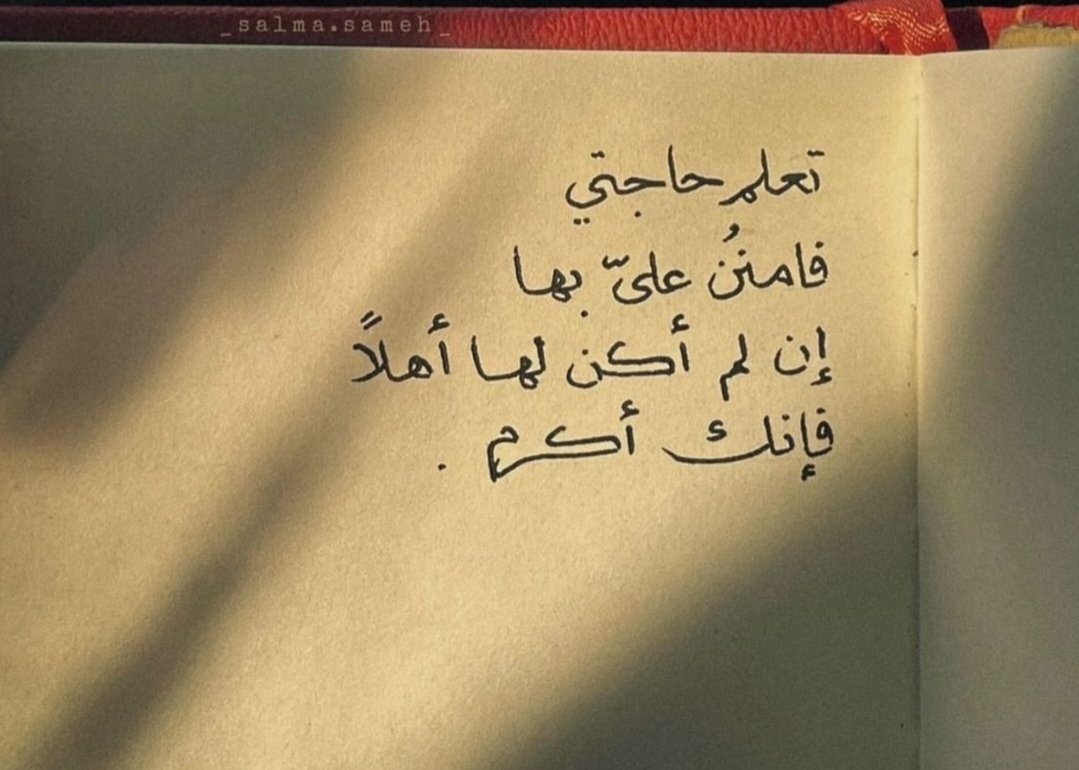 _salma.sameh_
تعلم حاجتي
فامننُ عليّ بها
إن لم أكن لها أهلاً
فإنك أكرم .